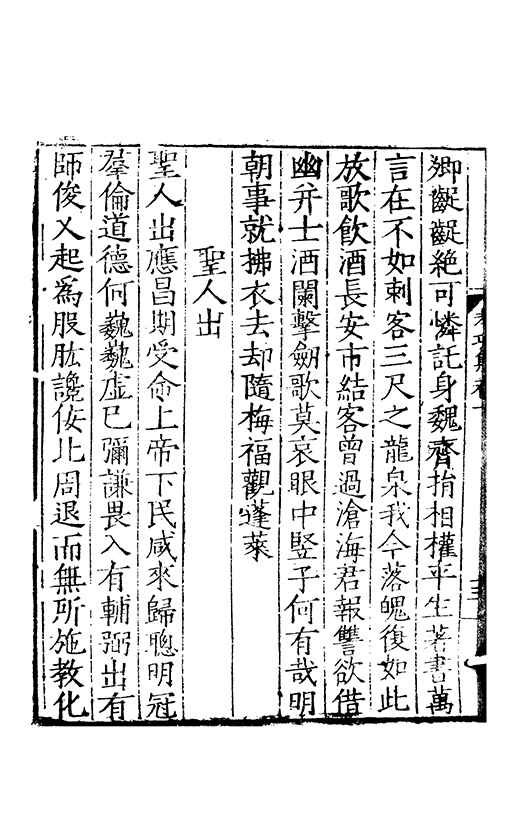 卿齪齪絶可憐託身魏齊捐相權平生著書萬
言在不如刺客三尺之龍泉我今落魄復如此
放歌飲酒長安市結客曾過滄海君報讐欲借
幽并士酒闌擊劍歌莫哀眼中竪子何有哉明
朝事就拂衣去却隨梅福觀蓬萊
聖人出
聖人出應昌期受命上帝下民咸來歸聰明冠
羣倫道德何巍巍虛已彌謙畏入有輔弼出有
師俊乂起爲股肱讒佞比周退而無所施教化